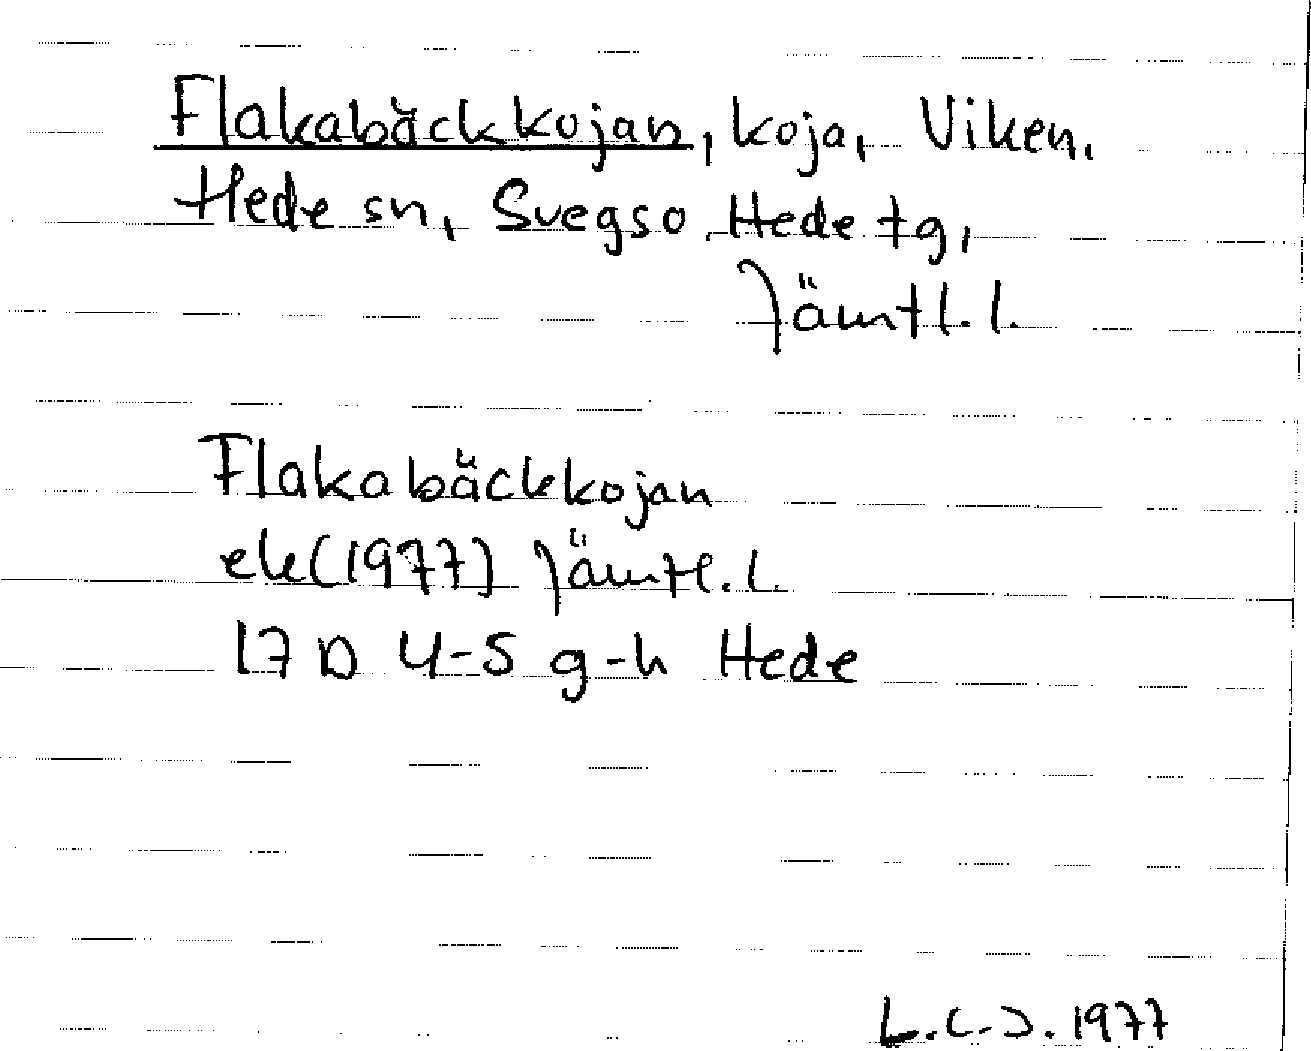 Flakabäckkojan, koja, Viken,
Hede sn, Svegso Hede tg,
Jämtl. l.
Flakabäckkojan
ek(1977) Jämtl. L.
17 D 4-5 g-h Hede
L.C.J. 1977